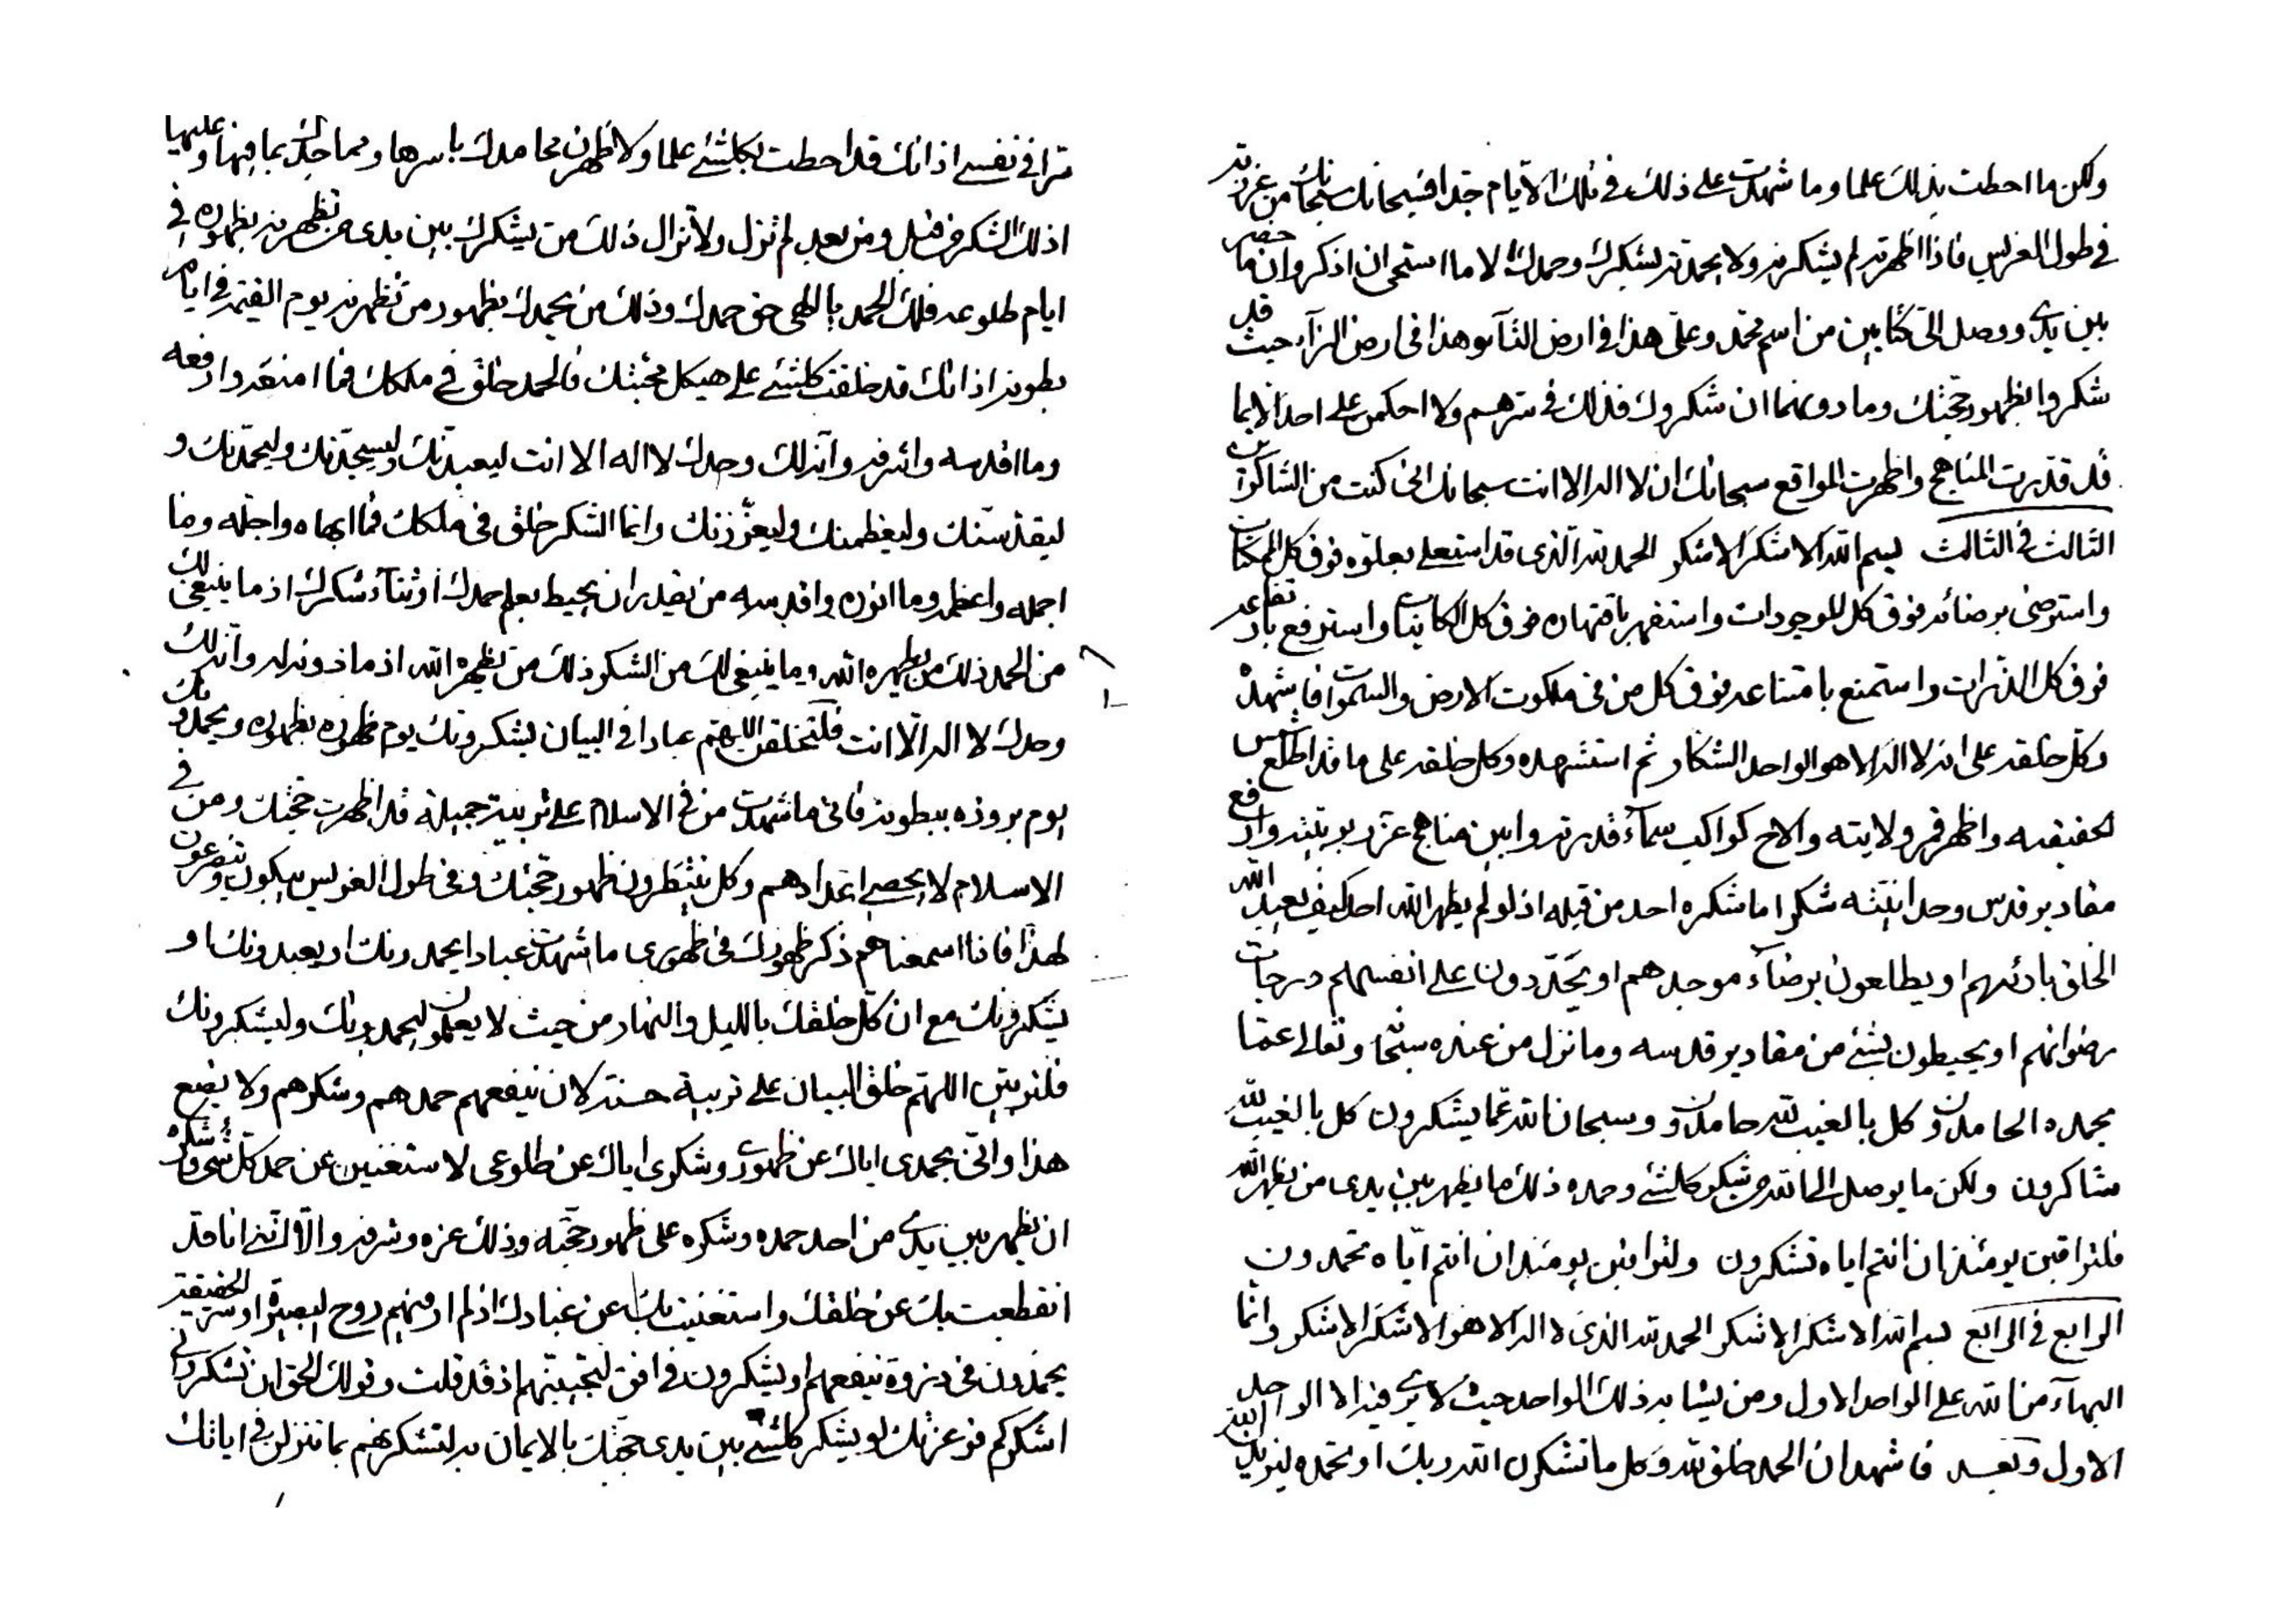 ولكن ما احطت بذلك علما وما شهدت على ذلك في تلك الايام جدا فسبحانك سبحانك من عززته
في طول الغرس فاذا اظهرته لم يشكرنه ولا يحمدنه بشكرك وحمدك الا ما استحى ان اذكر وان ما حضر
بين يدي ووصل الي كتابين من اسم محمد وعلي هذا في ارض التآء وهذا في ارض الزآء حيث قد
شكروا بظهور حجتك وما دونهما ان شكروك فذلك في سرهم ولا احكمن على احد الا بما
قد قدرت المناهج واظهرت المواقع سبحانك ان لا اله الا انت سبحانك انى كنت من الشاكرين
الثالث في الثالث بسم الله الاشكر الاشكر الحمد لله الذي قد استعلى بعلوه فوق كل الممكنات
واسترضى برضائه فوق كل الموجودات واستقهر باقتهاره فوق كل الكاينات واسترفع بارتفاعه
فوق كل الذرات واستمنع بامتناعه فوق كل من في ملكوت الارض والسموات فاشهده
وكل خلقه على انه لا اله الا هو الواحد الشكار ثم استشهده وكل خلقه على ما قد اطلع شمس
الحقيقه واظهر قمر ولايته والاح كواكب سمآء قدرته وابين مناهج عز ربوبيته وارفع
مقادير قدس وحدانيته شكرا ما شكره احد من قبله اذ لو لم يظهر الله احد كيف يعبد الله
الخلق بادئهم او يطلعون برضآء موجدهم او يحددون على انفسهم درجات
رضوانهم او يحيطون بشئ من مقادير قدسه وما نزل من عنده سبحانه وتعالى عما
يحمده الحامدون وكل بالغيب لله حامدون وسبحان الله عما يشكرون كل بالغيب لله
شاكرون ولكن ما يوصل الى الله من شكر كلشئ وحمده ذلك ما يظهر بين يدي من يظهره الله
فلتراقبن يومئذ ان انتم اياه تشكرون ولتراقبن يومئذ ان انتم اياه تحمدون
الرابع في الرابع بسم الله الاشكر الاشكر الحمد لله الذي لا اله الا هو الاشكر الاشكر وانما
البهآء من الله على الواحد الاول ومن يشابه ذلك الواحد حيث لا يرى فيه الا الواحد
الاول وبعد فاشهد ان الحمد خلق لله وكل ما تشكرن الله ربك او تحمده ليزيدنك الله
ترا في نفسي اذ انك قد احطت بكلشئ علما ولاظهرن محامدك باسرها ومماجدك بما فيها وعليها
اذ لك الشكر من قبل ومن بعد لم تزل ولا تزال ذلك من يشكرك بين يدي من تظهرنه بظهوره في
ايام طلوعه فلك الحمد يا الهي حق حمدك وذلك من يحمدك بظهور من تظهرنه يوم القيمة في ايام
بطونه اذ انك قد خلقت كلشئ على هيكل محبتك فالحمد خلق في ملكك فما امنعه وارفعه
وما اقدسه واشرفه وانه لك وحدك لا اله الا انت ليعبدنك وليسجدنك وليحمدنك و
ليقدسنك وليعظمنك وليعززنك وانما الشكر خلق في ملكك فما ابهاه واجله وما
اجمله واعظمه وما انوره واقدسه من يقدر ان يحيط بعلم حمدك او ثنآء شكرك اذ ما ينبغي لك
من الحمد ذلك من يظهره الله وما ينبغي لك من الشكر ذلك من يظهره الله اذ ما دونه له وانه لك
وحدك لا اله الا انت فلتخلقن اللهم عبادا في البيان يشكرونك يوم ظهوره بظهوره ويحمدونك
يوم بروزه ببطونه فاني ما شهدت من في الاسلام على تربيته جميلة قد اظهرت حجتك ومن في
الاسلام لا يحصى اعدادهم وكل ينتظرون ظهور حجتك وفي طول الغرس يبكون ويتضرعون
لهذا فانا اسمعناهم ذكر ظهورك في ظهوري ما شهدت عبادا يحمدونك او يعبدونك او
يشكرونك مع ان كل خلقك بالليل والنهار من حيث لا يعلمون ليحمدونك وليشكرونك
فلتربين اللهم خلق البيان على تربية حسنة لان ينفعهم حمدهم وشكرهم ولا يضيع
هذا واني بحمدي اياك عن ظهوري وشكري اياك عن طلوعي لاستغنين عن حمد كل شئ وشكره
ان يظهر بين يدي من احد حمده وشكره على ظهور حجته وذلك عزه وشرفه والا انني انا قد
انقطعت بك عن خلقك واستغنيت بك عن عبادك اذ لم ار منهم روح البصيرة او سر الحقيقة
يحمدون في ذروة ينفعهم او يشكرون في افق لتجيبنهم اذ قد قلت وقولك الحق ان تشكروني
اشكركم فوعزتك لو يشكر كلشئ بين يدي حجتك بالايمان به لتشكرنهم بما تنزلن في اياتك